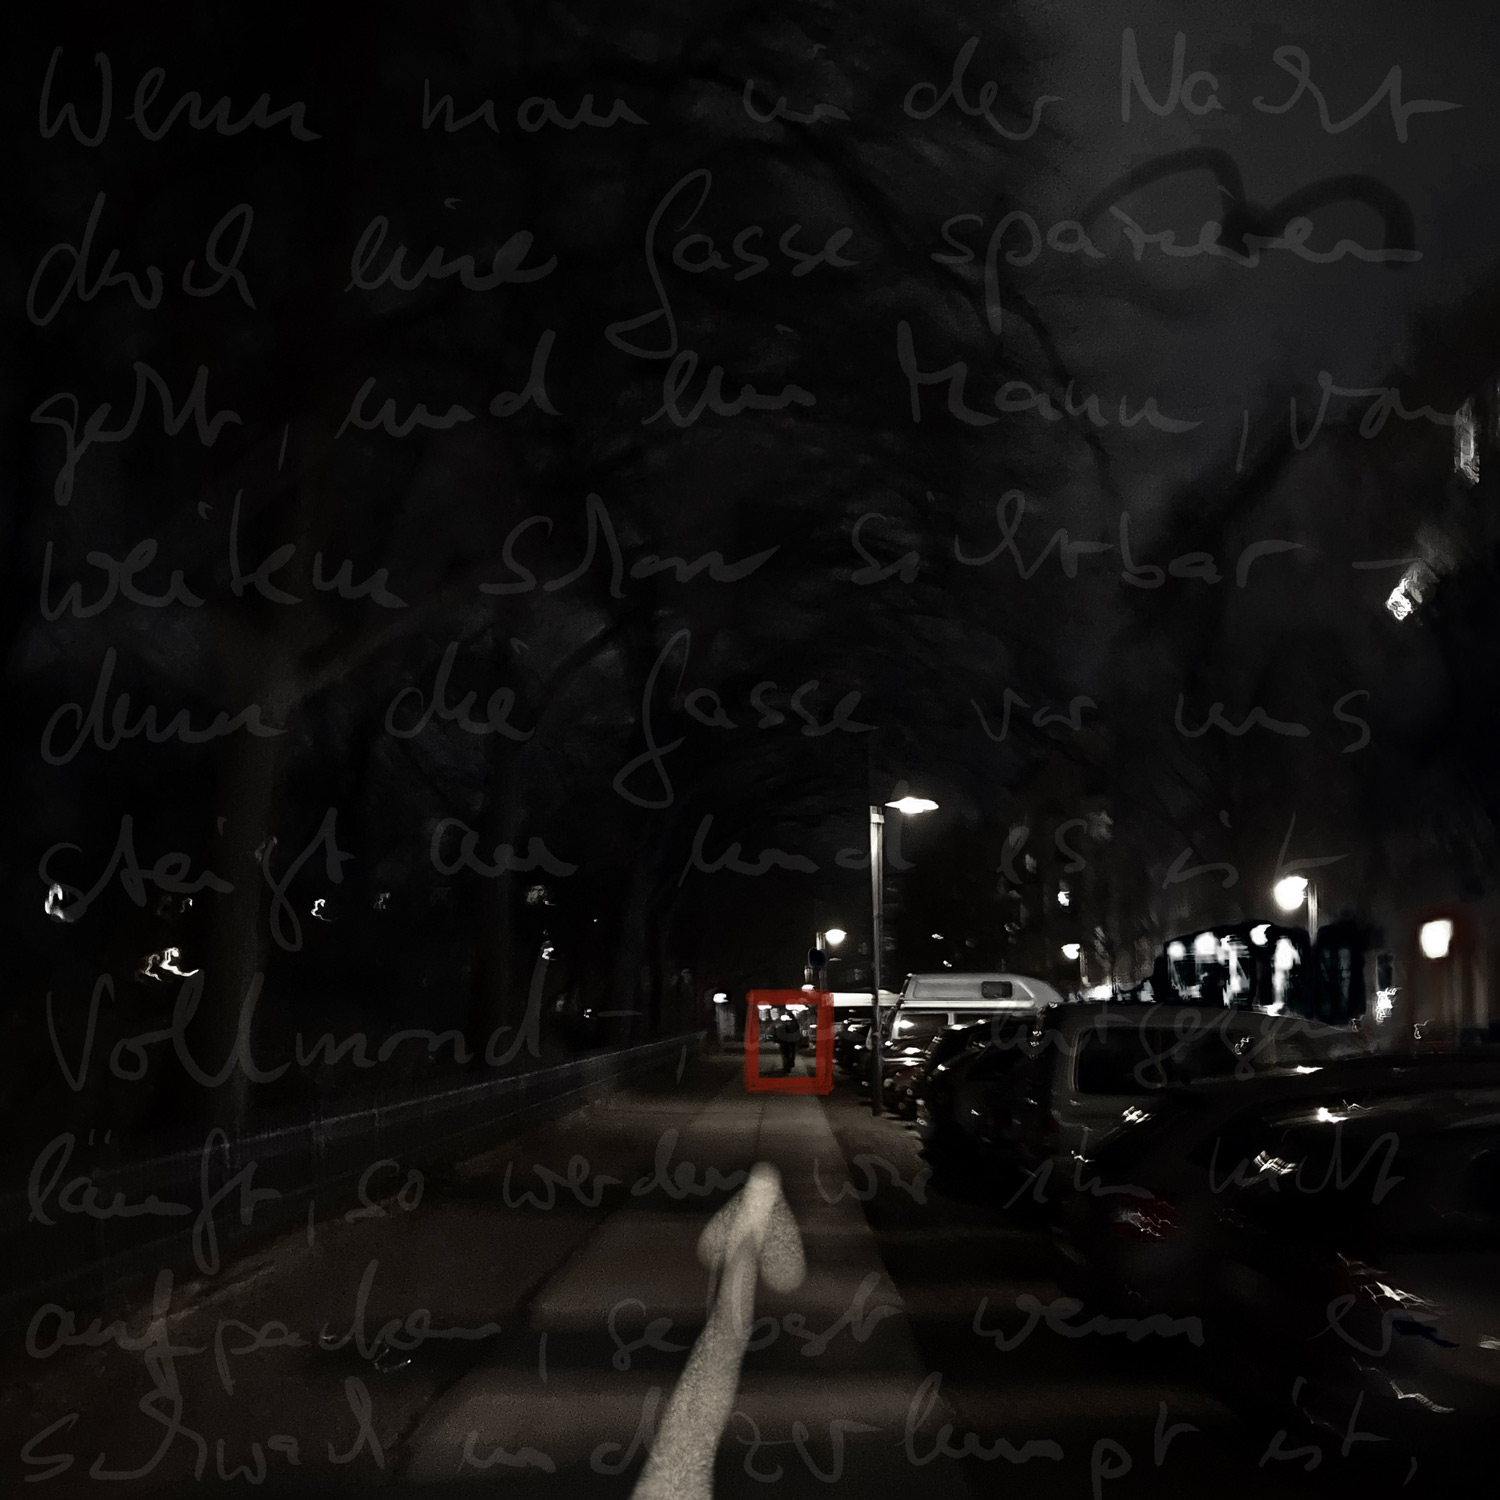 Wenn man in der Nacht
durch eine Gasse spazieren
geht, und ein Mann, von
weitem schon sichtbar -
denn die Gasse vor uns
steigt an und es ist
Vollmond -, uns entgegen
läuft, so werden wir ihn nicht
anpacken, selbst wenn er
schwach und zerlumpt ist,